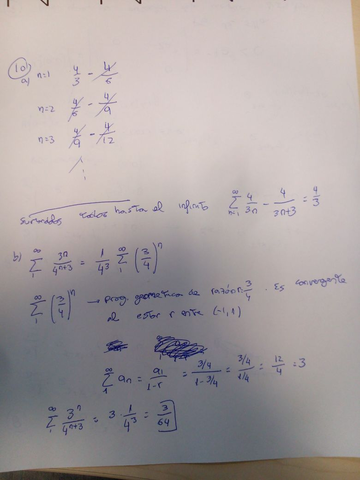 10)
a) n=1 4/3 - 4/6
n=2 4/6 - 4/9
n=3 4/9 - 4/12
⋮
sumandos todos hasta el infinito ∑_{n=1}^{∞} 4/3n - 4/3n+3 = 4/3
b) ∑_{1}^{∞} 3^n/4^{n+3} = 1/4^3 ∑_{1}^{∞} (3/4)^n
∑_{1}^{∞} (3/4)^n → prog. geometrica de razón 3/4. Es convergente
al estar r entre (-1,1)
∑_{1}^{∞} a_n = a_1/1-r = 3/4/1-3/4 = 3/4/1/4 = 12/4 = 3
∑_{1}^{∞} 3^n/4^{n+3} = 3 · 1/4^3 = 3/64